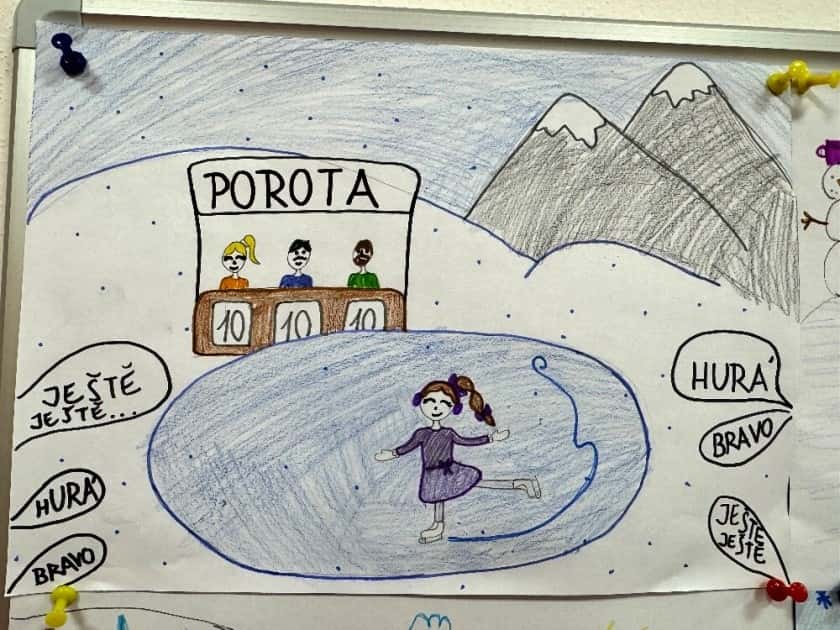 POROTA
10 10 10
JEŠTĚ
JEŠTĚ...
HURÁ
BRAVO
HURÁ
BRAVO
JEŠTĚ
JEŠTĚ